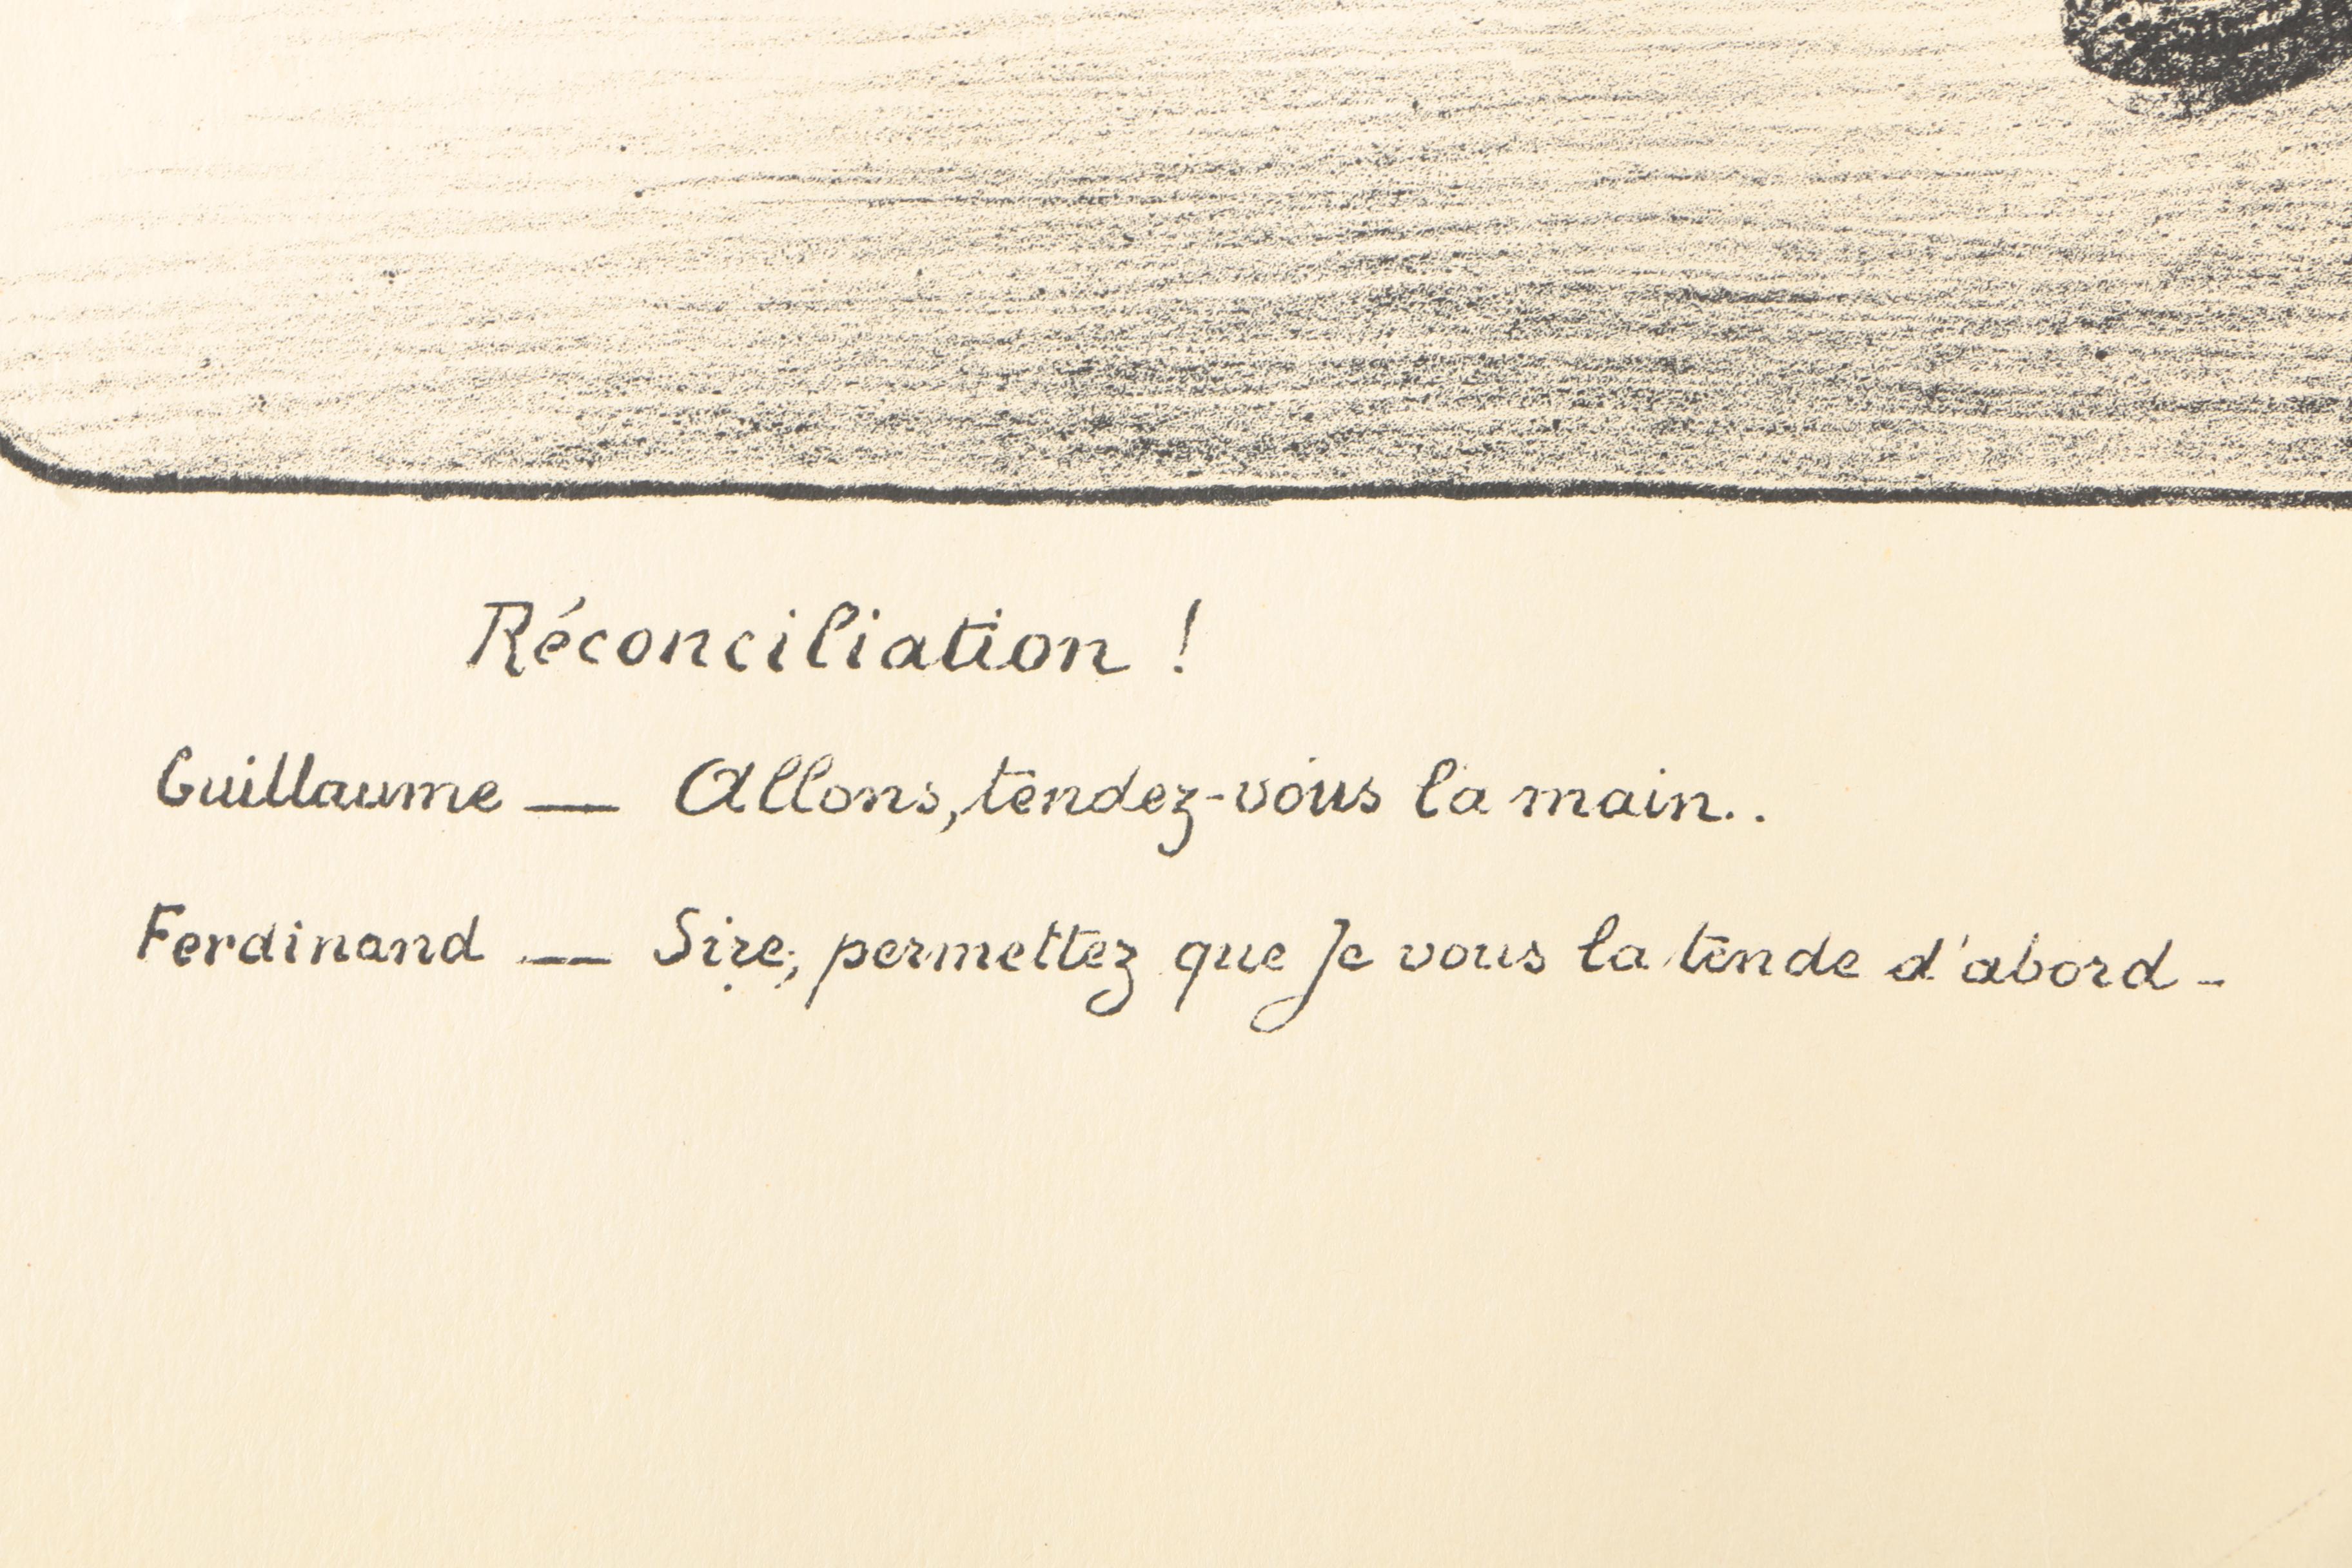 Réconciliation !
Guillaume — Allons, tendez-vous la main..
Ferdinand — Sire, permettez que Je vous la tende d'abord -